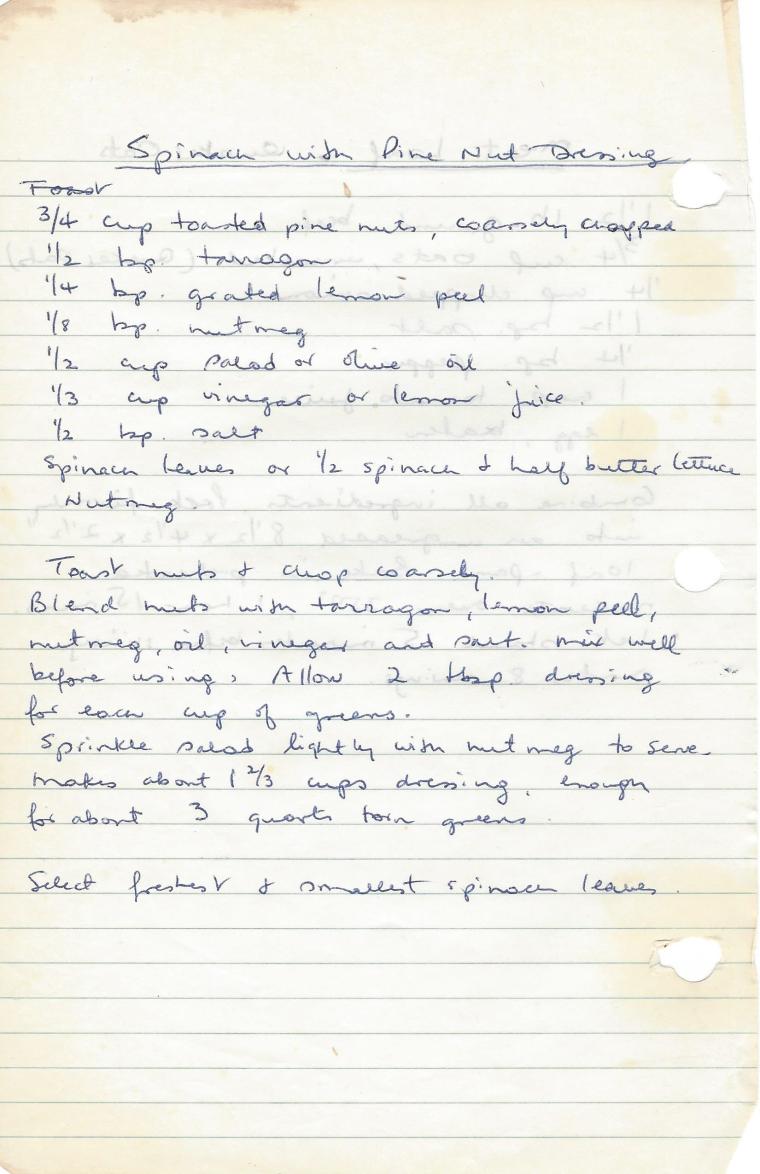 Spinach with Pine Nut Dressing
Toast
3/4 cup toasted pine nuts, coarsely chopped
1/2 tsp. tarragon
1/4 tsp. grated lemon peel
1/8 tsp. nutmeg
1/2 cup salad or olive oil
1/3 cup vinegar or lemon juice.
1/2 tsp. salt
Spinach leaves or 1/2 spinach & half butter lettuce
Nutmeg.
Toast nuts & chop coarsely.
Blend nuts with tarragon, lemon peel,
nutmeg, oil, vinegar and salt. Mix well
before using. Allow 2 tbsp. dressing
for each cup of greens.
Sprinkle salad lightly with nutmeg to serve.
Makes about 1 2/3 cups dressing, enough
for about 3 quarts torn greens.
Select freshest & smallest spinach leaves.